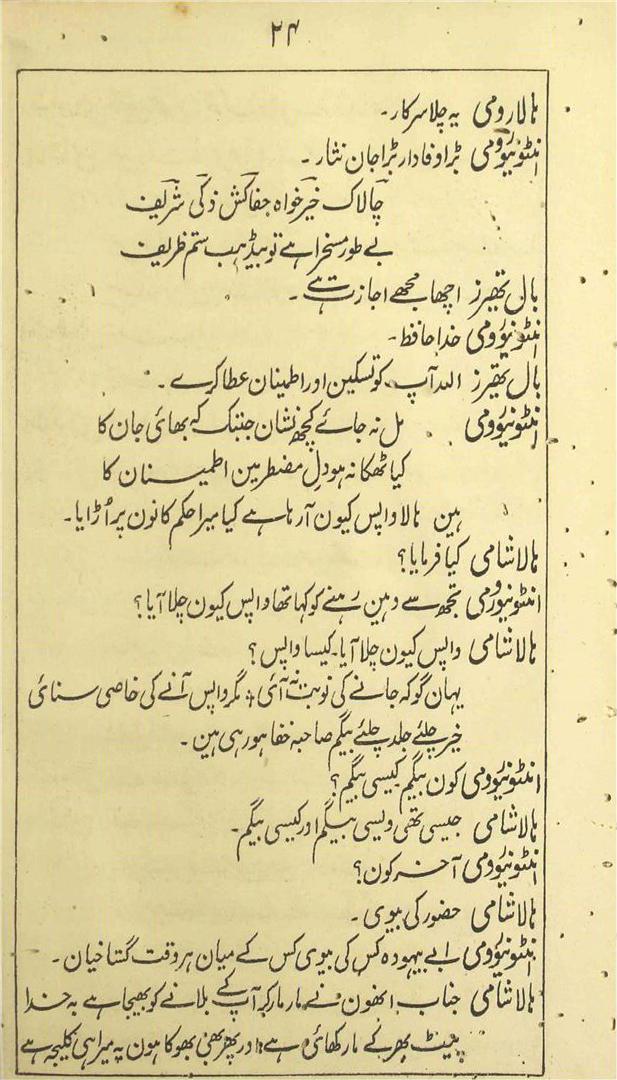 ۲۴
ہالا رومی یہ چلا سرکار۔
انٹونیو رومی بڑا وفادار بڑا جان نثار ۔
چالاک خیرخواہ جفاکش ذکی شریف
بے طور مسخرا ہے تو بیڈہب ستم ظریف
بال تھیرز اچھا مجھے اجازت ہے ۔
انٹونیو رومی خدا حافظ۔
بال تھیرز اللہ آپ کو تسکین اور اطمینان عطا کرے ۔
انٹونیو رومی مل نہ جاے کچھ نشان جبتک کہ بھائی جان کا
کیا ٹھکانہ ہو دلِ مضطر مین اطمینان کا
ہین ہالا واپس کیون آرہا ہے کیا میرا حکم کانون پر اُڑایا۔
ہالا شامی کیا فرمایا؟
انٹونیو رومی تجھ سے وہین رہنے کو کہا تھا واپس کیون چلا آیا؟
ہالا شامی واپس کیون چلا آیا۔ کیسا واپس؟
یہان گو کہ جانے کی نوبت نہ آئی ؛ مگر واپس آنے کی خاصی سنائی
خیر چلئے جلد چلئے بیگم صاحبہ خفا ہو رہی ہین ۔
انٹونیو رومی کون بیگم۔ کیسی بیگم؟
ہالا شامی جیسی تھی ویسی بیگم اور کیسی بیگم۔
انٹونیو رومی آخر کون؟
ہالا شامی حضور کی بیوی ۔
انٹونیو رومی ابے بیہودہ کس کی بیوی کس کے میان ہر وقت گستاخیان ۔
ہالا شامی جناب انھون نے مار مار کر آپ کے بلانے کو بھیجا ہے بہ خدا
پیٹ بھر کے مار کھائی ہے؛ اور پھر بھی بھوکا ہون یہ میرا ہی کلیجہ ہے